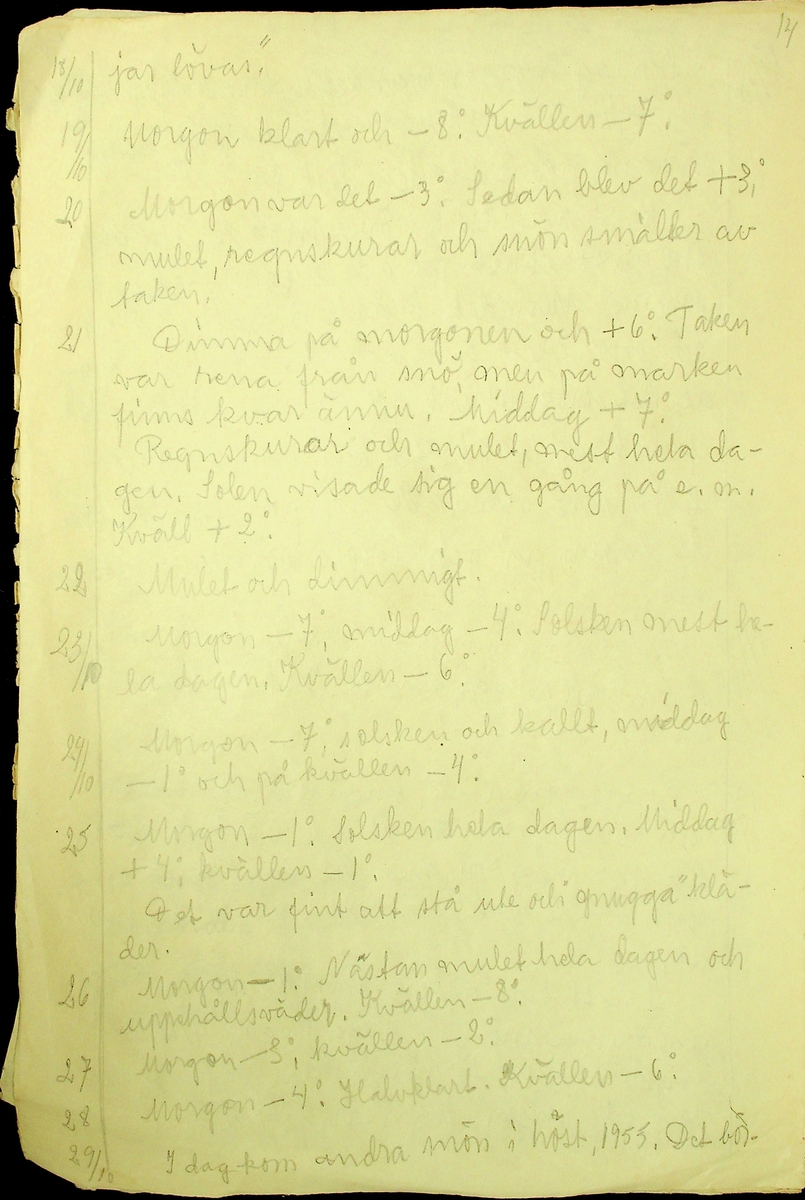 14
18/10 jar lövas."
19/10 Morgon klart och –8°. Kvällen –7°.
20 Morgon var det –3°. Sedan blev det +3°,
mulet, regnskurar och snön smälter av
taken.
21 Dimma på morgonen och +6°. Taken
var rena från snö, men på marken
finns kvar ännu. Middag +7°.
Regnskurar och mulet, mest hela da-
gen. Solen visade sig en gång på e.m.
Kväll +2°.
22 Mulet och dimmigt.
23/10 Morgon –7°, middag –4°. Solsken mest he-
la dagen. Kvällen –6°.
24/10 Morgon –7°, solsken och kallt, middag
–1° och på kvällen –4°.
25 Morgon –1°. Solsken hela dagen. Middag
+4°, kvällen –1°.
Det var fint att stå ute och "gnugga" klä-
der.
26 Morgon –1°. Nästan mulet hela dagen och
uppehållsväder. Kvällen –8°.
27 Morgon –3°, kvällen –2°.
28 Morgon –4°. Halvklart. Kvällen –6°.
29/10 I dag kom andra snön i höst, 1955. Det bör-